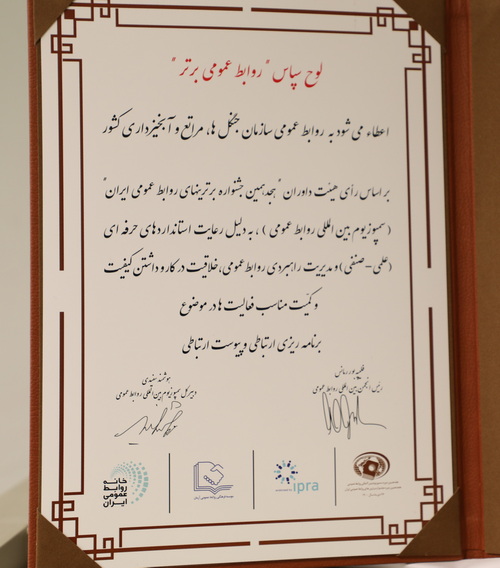 لوح سپاس "روابط عمومی برتر"
اعطاء می شود به روابط عمومی سازمان جنگل ها، مراتع و آبخیزداری کشور
بر اساس رأی هیئت داوران "هجدهمین جشنواره برترینهای روابط عمومی ایران"
(سمپوزیوم بین المللی روابط عمومی)، به دلیل رعایت استانداردهای حرفه ای
(علمی-صنفی) و مدیریت راهبردی روابط عمومی، خلاقیت در کار و داشتن کیفیت
و کمیّت مناسب فعالیت ها در موضوع
برنامه ریزی ارتباطی و پیوست ارتباطی
رئیس انجمن بین المللی روابط عمومی
هوشمند سفیدی
دبیر کل سمپوزیوم بین المللی روابط عمومی
ipra
خانه
روابط
عمومی
ایران